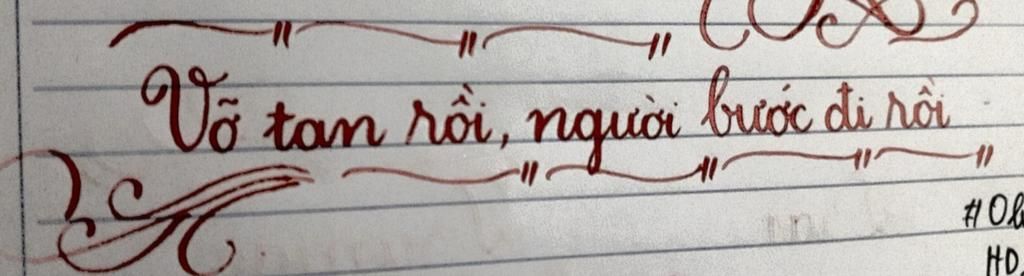 Vỡ tan rồi, người bước đi rồi
HD